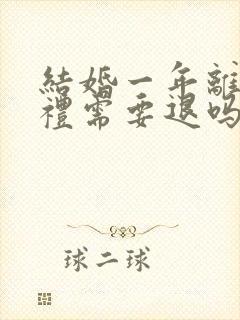 結婚一年離
禮需要退吗
球二球